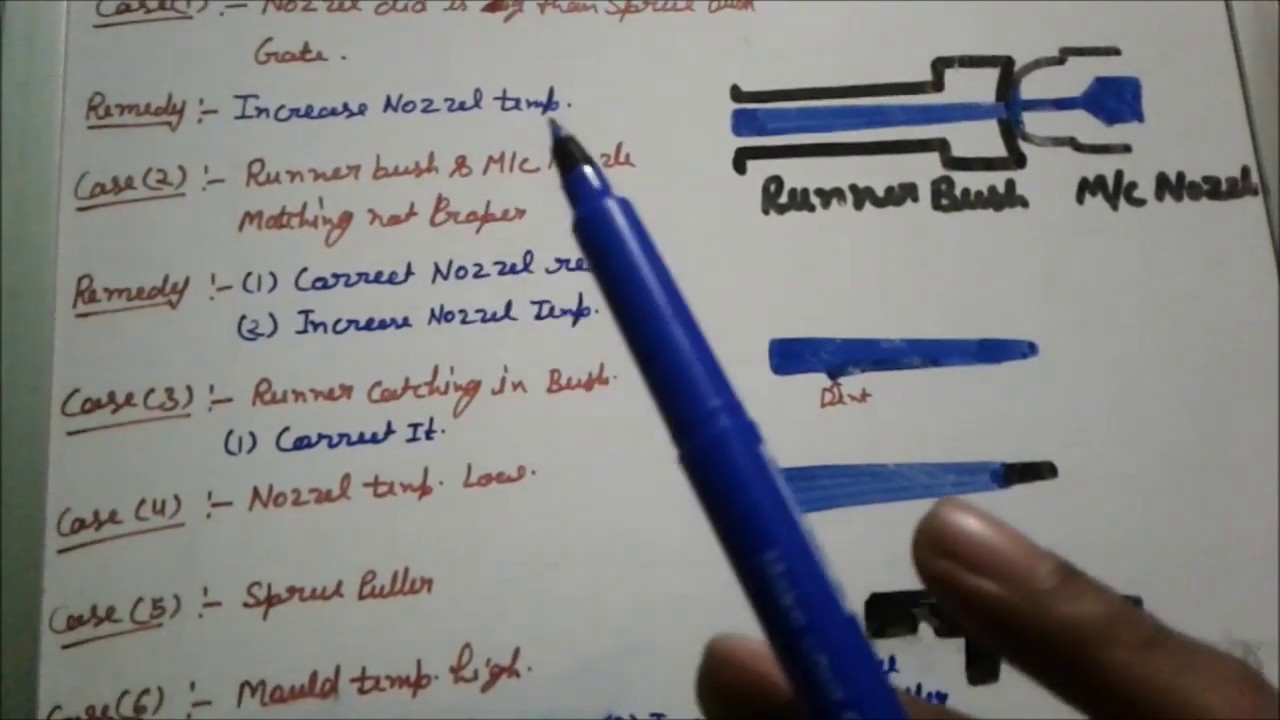 Case(1) :- Nozzel dia is than Sprue bush
Grate.
Remedy :- Increase Nozzel temp.
Case(2) :- Runner bush & M/c
Matching not Proper
Remedy :- (1) Correct Nozzel
(2) Increase Nozzel Temp.
Case(3) :- Runner Catching in Bush.
(1) Correct It.
Case(4) :- Nozzel temp. Low.
Case(5) :- Sprue Puller
Case(6) :- Mould temp. high.
Runner Bush M/c Nozzl
Dent